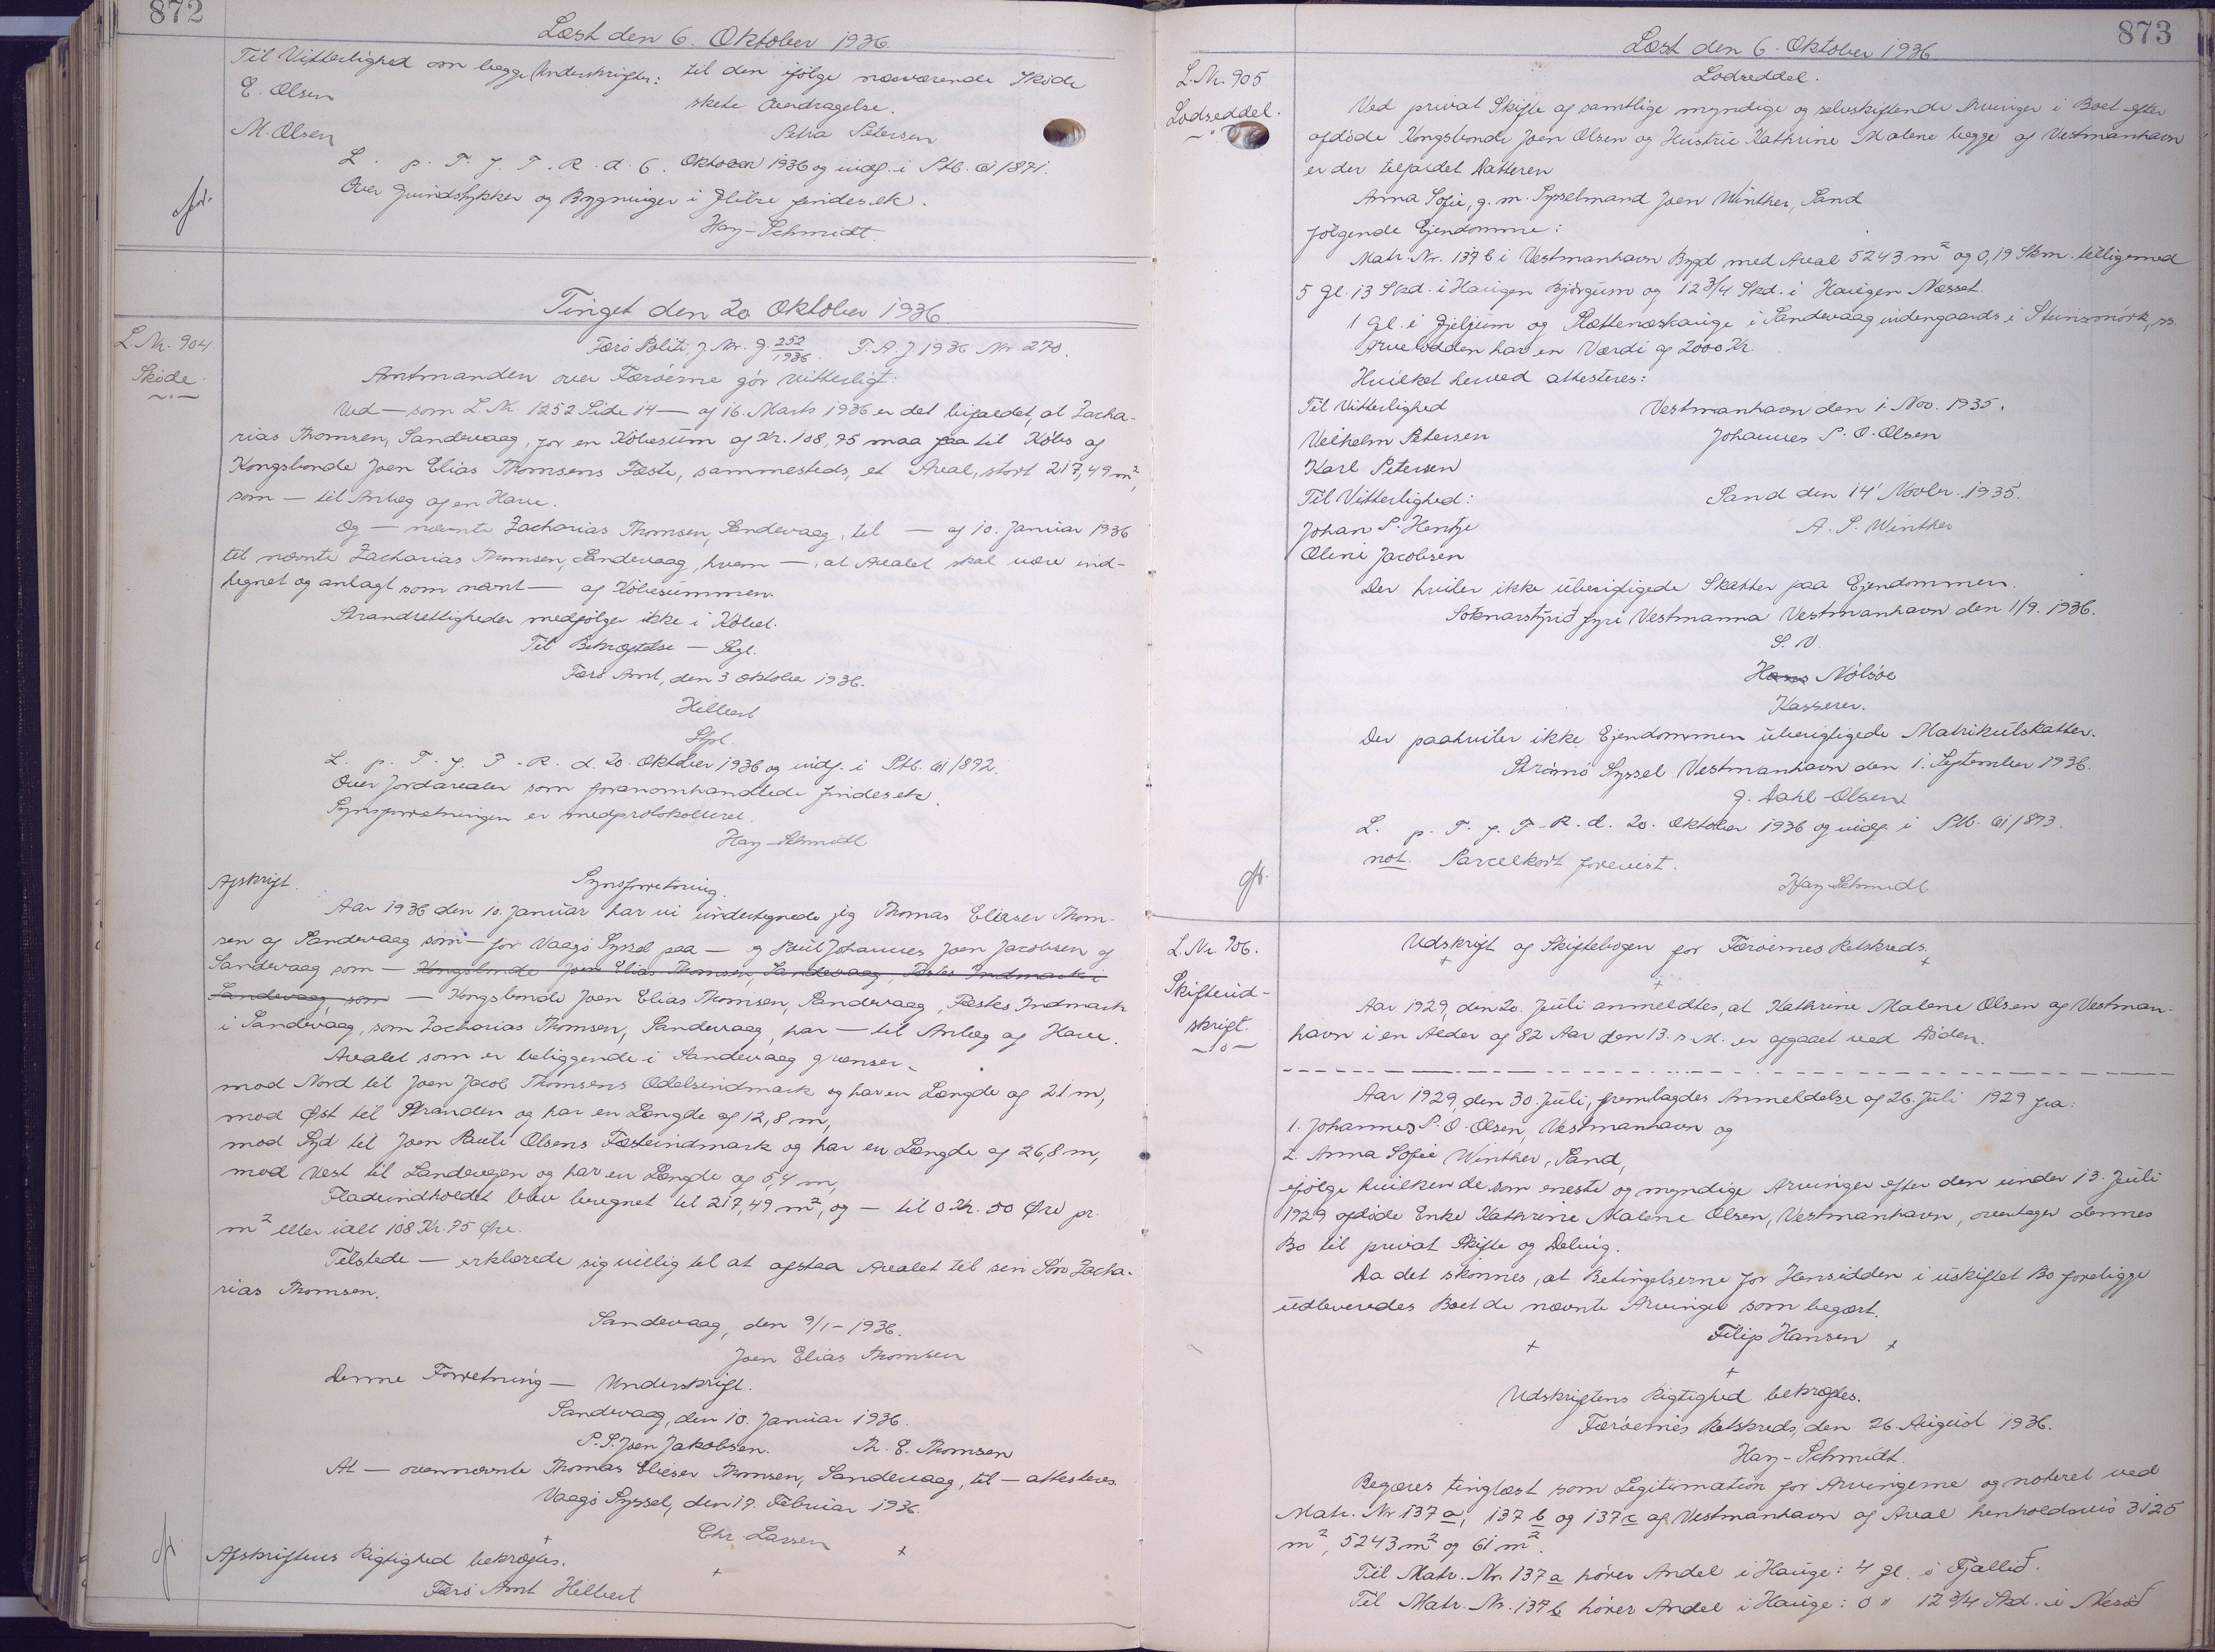 872
Læst den 6. Oktober 1936.
Til Vitterlighed om begge Underskrifter: til den ifølge nærværende Skøde
E. Olsen
skete Overdragelse.
M. Olsen
Petra Petersen
L. p. T. f. F. R. d. 6. Oktober 1936 og indf. i Ptb. 61/871.
Over Grundstykker og Bygninger i Glibre findes ek.
Hay-Schmidt.
Tinget den 20 Oktober 1936.
L.Nr. 904.
Skøde.
Færø Politi J Nr. G. 252/1936. T.A.J 1936 Nr. 270.
Amtmanden over Færøerne gör vitterligt:
Ved — som L Nr. 1252 Side 14 — af 16. Marts 1936 er det bifaldet, at Zacha-
rias Thomsen, Sandevaag, for en Købesum af Kr. 108,75 maa faa til Købs af
Kongsbonde Joen Elias Thomsens Fæste, sammesteds, et Areal, stort 217,49 m²,
som — til Anlæg af en Have.
Og — nævnte Zacharias Thomsen, Sandevaag, til — af 10. Januar 1936
til nævnte Zacharias Thomsen, Sandevaag, hvem —, at Arealet skal være ind-
hegnet og anlagt som nævnt — af Købesummen.
Strandrettigheder medfølger ikke i Købet.
Til Bekræftelse — Segl.
Færø Amt, den 3 Oktober 1936.
Hilbert
Stpl.
L. p. T. f. F. R. d. 20. Oktober 1936 og indf. i Ptb. 61/872.
Over Jordarealer som foranomhandlede findes ek.
Synsforretningen er medprotokolleret.
Hay-Schmidt
Afskrift.
Synsforretning.
Aar 1936 den 10. Januar har vi undertegnede jeg Thomas Elieser Thom-
sen af Sandevaag som — for Vaagø Syssel paa — og Poul Johannes Joen Jacobsen af
Sandevaag som — Kongsbonde Joen Elias Thomsen, Sandevaag, Fæstes Indmark i
Sandevaag, som — Kongsbonde Joen Elias Thomsen, Sandevaag, Fæstes Indmark
i Sandevaag, som Zacharias Thomsen, Sandevaag, har — til Anlæg af Have.
Arealet som er beliggende i Sandevaag grænser
mod Nord til Joen Jacob Thomsens Odelsindmark og har en Længde af 21 m,
mod Øst til Stranden og har en Længde af 12,8 m,
mod Syd til Joen Pauli Olsens Fæsteindmark og har en Længde af 26,8 m,
mod Vest til Landevejen og har en Længde af 5,4 m,
Fladeindholdet blev beregnet til 217,49 m², og — til 0 Kr. 50 Øre pr.
m² eller ialt 108 Kr. 75 Øre.
Tilstede — erklærede sig villig til at afstaa Arealet til sin Søn Zacha-
rias Thomsen.
Sandevaag, den 9/1 - 1936.
Joen Elias Thomsen
Denne Forretning — Underskrift.
Sandevaag, den 10. Januar 1936.
P. J. Joen Jakobsen. Th. E. Thomsen
At — ovennævnte Thomas Elieser Thomsen, Sandevaag, til — attesteres.
Vaagø Syssel, den 17. Februar 1936.
Chr. Larsen
Afskriftens Rigtighed bekræftes.
Færø Amt Hilbert
873
Læst den 6. Oktober 1936.
L.Nr. 905
Lodseddel.
Lodseddel.
Ved privat Skifte af samtlige myndige og selvskiftende Arvinger i Boet efter
afdøde Kongsbonde Joen Olsen og Hustru Kathrine Malene begge af Vestmanhavn
er der tilfaldet Datteren
Anna Sofie, g. m. Sysselmand Joen Winther, Sand
følgende Ejendomme:
Matr. Nr. 137 b i Vestmanhavn Bygd med Areal 5243 m² og 0,19 Skm. tilligemed
5 Gl. 13 Skd. i Haugen Bjørgum og 12 3/4 Skd. i Haugen Næsset.
1 Gl. i Gjeljum og Slættenæshauge i Sandevaag indengaards i Steinsmørk, ss.
Arvelodden har en Værdi af 2000 Kr.
Hvilket herved attesteres:
Til Vitterlighed
Vestmanhavn den 1. Nov. 1935.
Vilhelm Petersen
Johannes P. O. Olsen
Karl Petersen
Til Vitterlighed:
Sand den 14' Novbr. 1935.
Johan P. Hentze
A. S. Winther
Oline Jacobsen
Der hviler ikke uberigtigede Skatter paa Ejendommen.
Soknarstýrið fyri Vestmanna Vestmanhavn den 1/9. 1936.
S. V.
Hans Nólsøe
Kasserer.
Der paahviler ikke Ejendommen uberigtigede Matrikulskatter.
Strømø Syssel Vestmanhavn den 1. September 1936.
J. Dahl-Olsen
L. p. T. f. F. R. d. 20. Oktober 1936 og indf. i Ptb. 61/873.
not. Parcelkort forevist.
Hay-Schmidt
L.Nr. 906.
Skifteud-
skrift.
Udskrift af Skiftebogen for Færøernes Retskreds.
Aar 1929, den 20. Juli anmeldtes, at Kathrine Malene Olsen af Vestman-
havn i en Alder af 82 Aar den 13. s. M. er afgaaet ved Døden.
Aar 1929, den 30. Juli, fremlagdes Anmeldelse af 26. Juli 1929 fra:
1. Johannes P. O. Olsen, Vestmanhavn og
2. Anna Sofie Winther, Sand,
ifølge hvilken de som eneste og myndige Arvinger efter den under 13. Juli
1929 afdøde Enke Kathrine Malene Olsen, Vestmanhavn, overtager dennes
Bo til privat Skifte og Deling.
Da det skønnes, at Betingelserne for Hensidden i uskiftet Bo foreligge
udleveredes Boet de nævnte Arvinger som begært.
Filip Hansen
Udskriftens Rigtighed bekræftes.
Færøernes Retskreds, den 26. August 1936.
Hay-Schmidt.
Begæres tinglæst som Legitimation for Arvingerne og noteret ved
Matr. Nr 137 a, 137 b og 137 c af Vestmanhavn af Areal henholdsvis 3125
m², 5243 m² og 61 m².
Til Matr. Nr. 137 a hører Andel i Hauge: 4 Gl. i Fjallið.
Til Matr. Nr. 137 b hører Andel i Hauge: 0 " 12 3/4 Skd. i